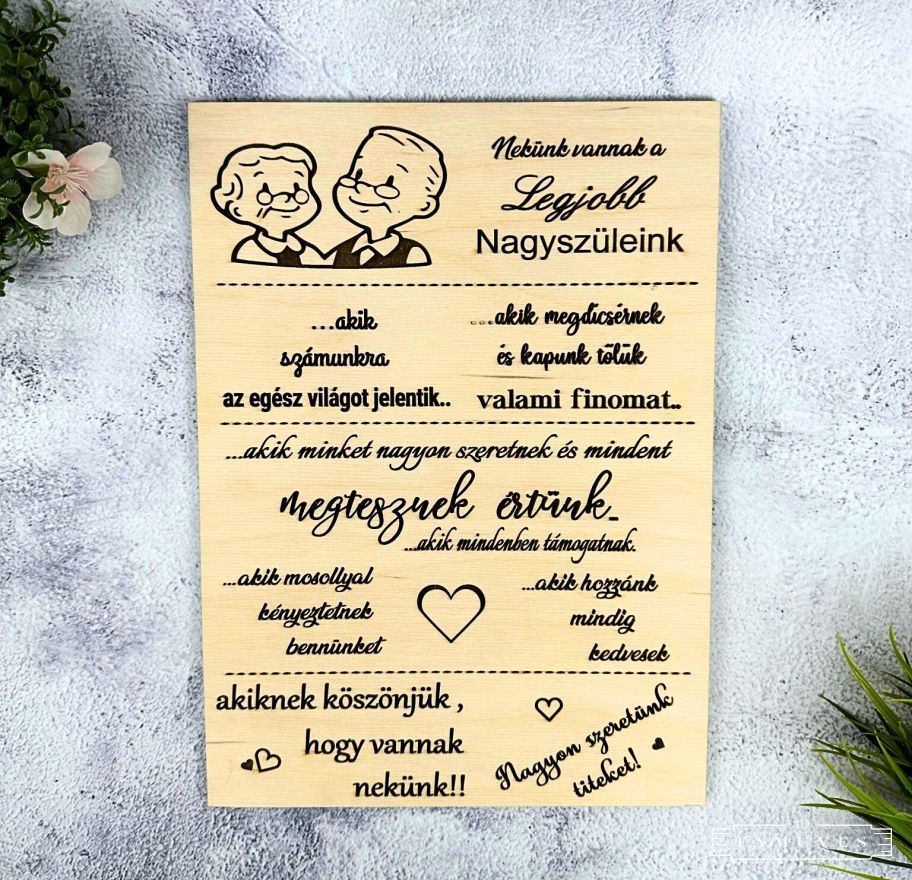 Nekünk vannak a
Legjobb
Nagyszüleink
...akik
számunkra
az egész világot jelentik..
...akik megdicsérnek
és kapunk tőlük
valami finomat..
...akik minket nagyon szeretnek és mindent
megtesznek értünk..
...akik mindenben támogatnak.
...akik mosollyal
kényeztetnek
bennünket
...akik hozzánk
mindig
kedvesek
akiknek köszönjük ,
hogy vannak
nekünk!!
Nagyon szeretünk
titeket!